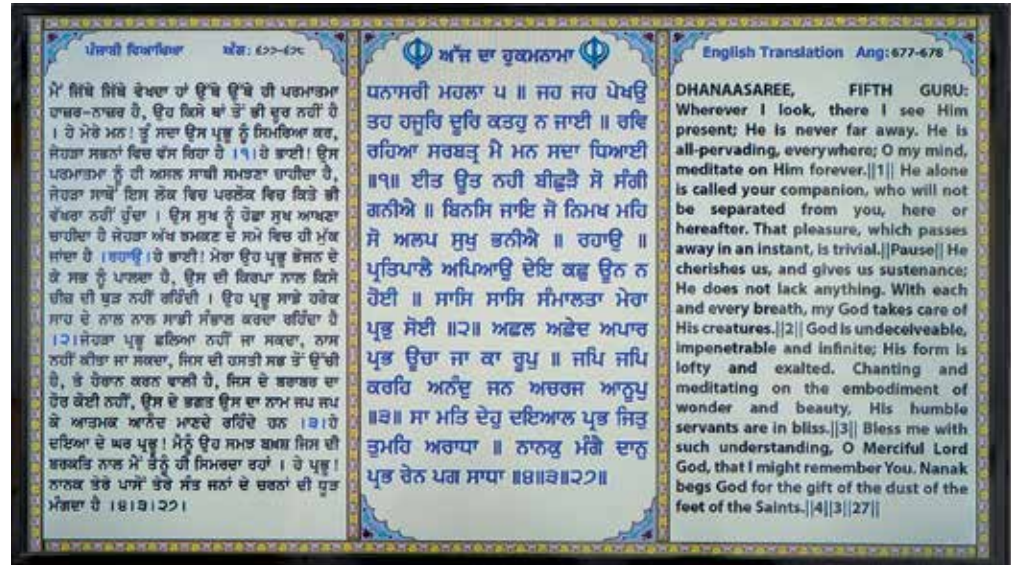 ਪੰਜਾਬੀ ਵਿਆਖਿਆ ਅੰਗ: ੬੭੭-੬੭੮
ਮੈਂ ਜਿੱਥੇ ਜਿੱਥੇ ਵੇਖਦਾ ਹਾਂ ਉੱਥੇ ਉੱਥੇ ਹੀ ਪਰਮਾਤਮਾ
ਹਾਜ਼ਰ-ਨਾਜ਼ਰ ਹੈ, ਉਹ ਕਿਸੇ ਥਾਂ ਤੋਂ ਭੀ ਦੂਰ ਨਹੀਂ ਹੈ
। ਹੇ ਮੇਰੇ ਮਨ! ਤੂੰ ਸਦਾ ਉਸ ਪ੍ਰਭੂ ਨੂੰ ਸਿਮਰਿਆ ਕਰ,
ਜੇਹੜਾ ਸਭਨਾਂ ਵਿਚ ਵੱਸ ਰਿਹਾ ਹੈ ।੧।ਹੇ ਭਾਈ! ਉਸ
ਪਰਮਾਤਮਾ ਨੂੰ ਹੀ ਅਸਲ ਸਾਥੀ ਸਮਝਣਾ ਚਾਹੀਦਾ ਹੈ,
ਜੇਹੜਾ ਸਾਥੋਂ ਇਸ ਲੋਕ ਵਿਚ ਪਰਲੋਕ ਵਿਚ ਕਿਤੇ ਭੀ
ਵੱਖਰਾ ਨਹੀਂ ਹੁੰਦਾ । ਉਸ ਸੁਖ ਨੂੰ ਹੋਛਾ ਸੁਖ ਆਖਣਾ
ਚਾਹੀਦਾ ਹੈ ਜੇਹੜਾ ਅੱਖ ਝਮਕਣ ਦੇ ਸਮੇ ਵਿਚ ਹੀ ਮੁੱਕ
ਜਾਂਦਾ ਹੈ ।ਰਹਾਉ।ਹੇ ਭਾਈ! ਮੇਰਾ ਉਹ ਪ੍ਰਭੂ ਭੋਜਨ ਦੇ
ਕੇ ਸਭ ਨੂੰ ਪਾਲਦਾ ਹੈ, ਉਸ ਦੀ ਕਿਰਪਾ ਨਾਲ ਕਿਸੇ
ਚੀਜ਼ ਦੀ ਥੁੜ ਨਹੀਂ ਰਹਿੰਦੀ । ਉਹ ਪ੍ਰਭੂ ਸਾਡੇ ਹਰੇਕ
ਸਾਹ ਦੇ ਨਾਲ ਨਾਲ ਸਾਡੀ ਸੰਭਾਲ ਕਰਦਾ ਰਹਿੰਦਾ ਹੈ
।੨।ਜੇਹੜਾ ਪ੍ਰਭੂ ਛਲਿਆ ਨਹੀਂ ਜਾ ਸਕਦਾ, ਨਾਸ
ਨਹੀਂ ਕੀਤਾ ਜਾ ਸਕਦਾ, ਜਿਸ ਦੀ ਹਸਤੀ ਸਭ ਤੋਂ ਉੱਚੀ
ਹੈ, ਤੇ ਹੈਰਾਨ ਕਰਨ ਵਾਲੀ ਹੈ, ਜਿਸ ਦੇ ਬਰਾਬਰ ਦਾ
ਹੋਰ ਕੋਈ ਨਹੀਂ, ਉਸ ਦੇ ਭਗਤ ਉਸ ਦਾ ਨਾਮ ਜਪ ਜਪ
ਕੇ ਆਤਮਕ ਆਨੰਦ ਮਾਣਦੇ ਰਹਿੰਦੇ ਹਨ ।੩।ਹੇ
ਦਇਆ ਦੇ ਘਰ ਪ੍ਰਭੂ! ਮੈਨੂੰ ਉਹ ਸਮਝ ਬਖ਼ਸ਼ ਜਿਸ ਦੀ
ਬਰਕਤਿ ਨਾਲ ਮੈਂ ਤੈਨੂੰ ਹੀ ਸਿਮਰਦਾ ਰਹਾਂ । ਹੇ ਪ੍ਰਭੂ!
ਨਾਨਕ ਤੇਰੇ ਪਾਸੋਂ ਤੇਰੇ ਸੰਤ ਜਨਾਂ ਦੇ ਚਰਨਾਂ ਦੀ ਧੂੜ
ਮੰਗਦਾ ਹੈ ।੪।੩।੨੭।
ਅੱਜ ਦਾ ਹੁਕਮਨਾਮਾ
ਧਨਾਸਰੀ ਮਹਲਾ ੫ ॥ ਜਹ ਜਹ ਪੇਖਉ
ਤਹ ਹਜੂਰਿ ਦੂਰਿ ਕਤਹੁ ਨ ਜਾਈ ॥ ਰਵਿ
ਰਹਿਆ ਸਰਬਤ੍ਰ ਮੈ ਮਨ ਸਦਾ ਧਿਆਈ
॥੧॥ ਈਤ ਊਤ ਨਹੀ ਬੀਛੁੜੈ ਸੋ ਸੰਗੀ
ਗਨੀਐ ॥ ਬਿਨਸਿ ਜਾਇ ਜੋ ਨਿਮਖ ਮਹਿ
ਸੋ ਅਲਪ ਸੁਖੁ ਭਨੀਐ ॥ ਰਹਾਉ ॥
ਪ੍ਰਤਿਪਾਲੈ ਅਪਿਆਉ ਦੇਇ ਕਛੁ ਊਨ ਨ
ਹੋਈ ॥ ਸਾਸਿ ਸਾਸਿ ਸੰਮਾਲਤਾ ਮੇਰਾ
ਪ੍ਰਭੁ ਸੋਈ ॥੨॥ ਅਛਲ ਅਛੇਦ ਅਪਾਰ
ਪ੍ਰਭ ਊਚਾ ਜਾ ਕਾ ਰੂਪੁ ॥ ਜਪਿ ਜਪਿ
ਕਰਹਿ ਅਨੰਦੁ ਜਨ ਅਚਰਜ ਆਨੂਪੁ
॥੩॥ ਸਾ ਮਤਿ ਦੇਹੁ ਦਇਆਲ ਪ੍ਰਭ ਜਿਤੁ
ਤੁਮਹਿ ਅਰਾਧਾ ॥ ਨਾਨਕੁ ਮੰਗੈ ਦਾਨੁ
ਪ੍ਰਭ ਰੇਨ ਪਗ ਸਾਧਾ ॥੪॥੩॥੨੭॥
English Translation Ang: 677-678
DHANAASAREE, FIFTH GURU:
Wherever I look, there I see Him
present; He is never far away. He is
all-pervading, everywhere; O my mind,
meditate on Him forever.||1|| He alone
is called your companion, who will not
be separated from you, here or
hereafter. That pleasure, which passes
away in an instant, is trivial.||Pause|| He
cherishes us, and gives us sustenance;
He does not lack anything. With each
and every breath, my God takes care of
His creatures.||2|| God is undeceiveable,
impenetrable and infinite; His form is
lofty and exalted. Chanting and
meditating on the embodiment of
wonder and beauty, His humble
servants are in bliss.||3|| Bless me with
such understanding, O Merciful Lord
God, that I might remember You. Nanak
begs God for the gift of the dust of the
feet of the Saints.||4||3||27||